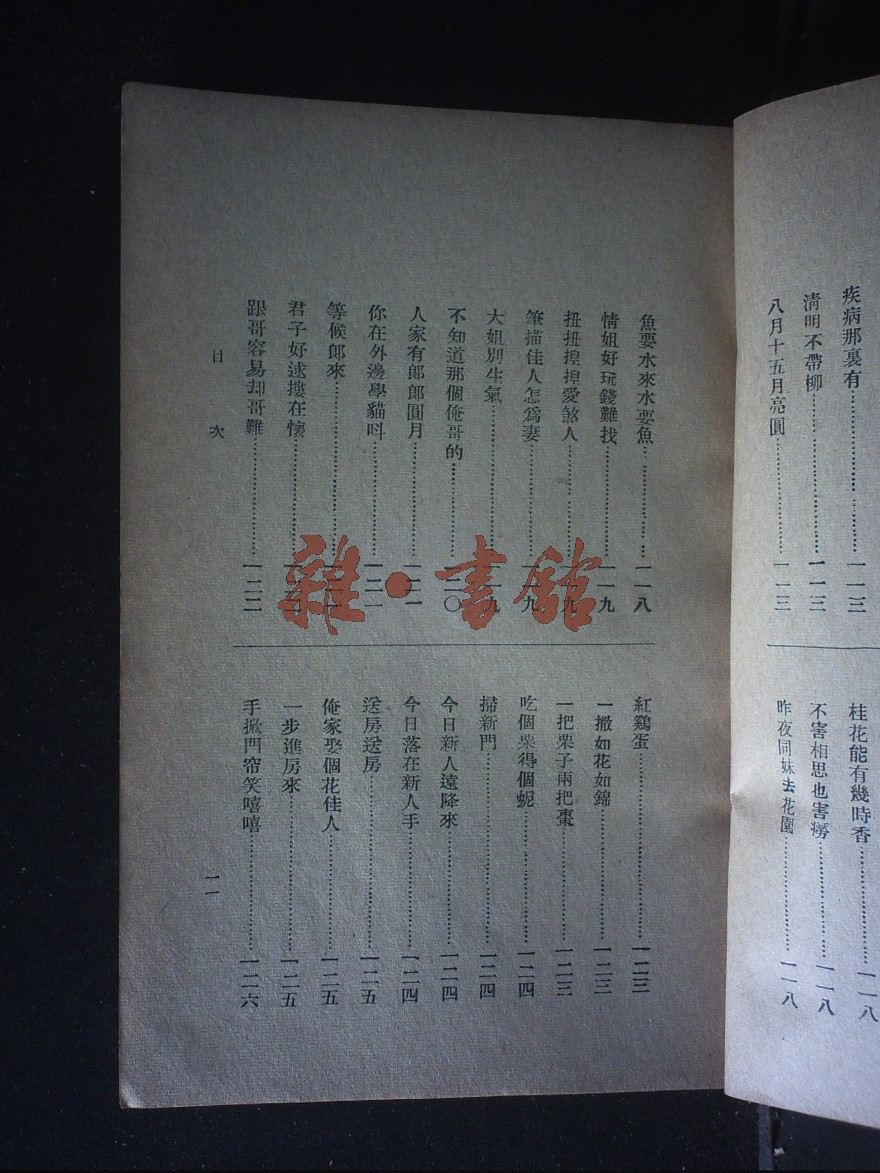 疾病那裏有……一一三
清明不帶柳……一一三
八月十五月亮圓……一一三
桂花能有幾時香……一一八
不害相思也害癆……一一八
昨夜同妹去花園……一一八
魚要水來水要魚……一一八
情姐好玩錢難找……一一九
扭扭揑揑愛煞人……一一九
筆描佳人怎爲妻……一一九
大姐別生氣……一一九
不知道那個俺哥的……一二〇
人家有郎郎圓月……一二一
你在外邊學貓呌……一二一
等候郎來……
君子好逑摟在懷……
跟哥容易却哥難……一二二
紅鷄蛋……一二三
一撒如花如錦……一二三
一把栗子兩把棗……一二三
吃個栗得個妮……一二四
掃新門……一二四
今日新人遠降來……一二四
今日落在新人手……一二四
送房送房……一二五
俺家娶個花佳人……一二五
一步進房來……一二五
手掀門帘笑嘻嘻……一二六
目次
一一
雜·書館